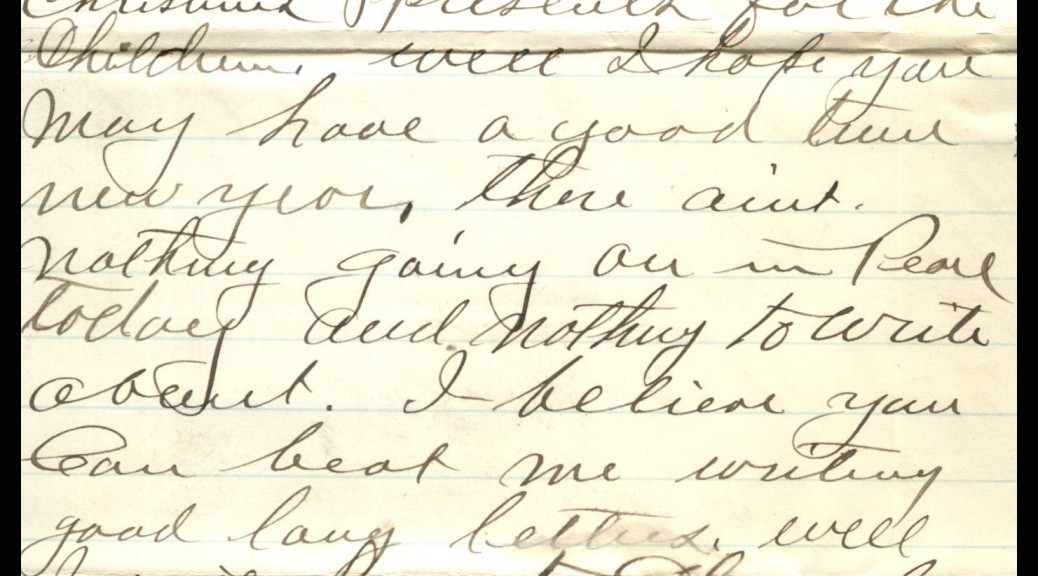 Christmas presents for the
Children. well I hope you
may have a good time
new year, there aint.
nothing going on in Pearl
today and nothing to write
about. I believe you
Can beat me writing
good long letters. well